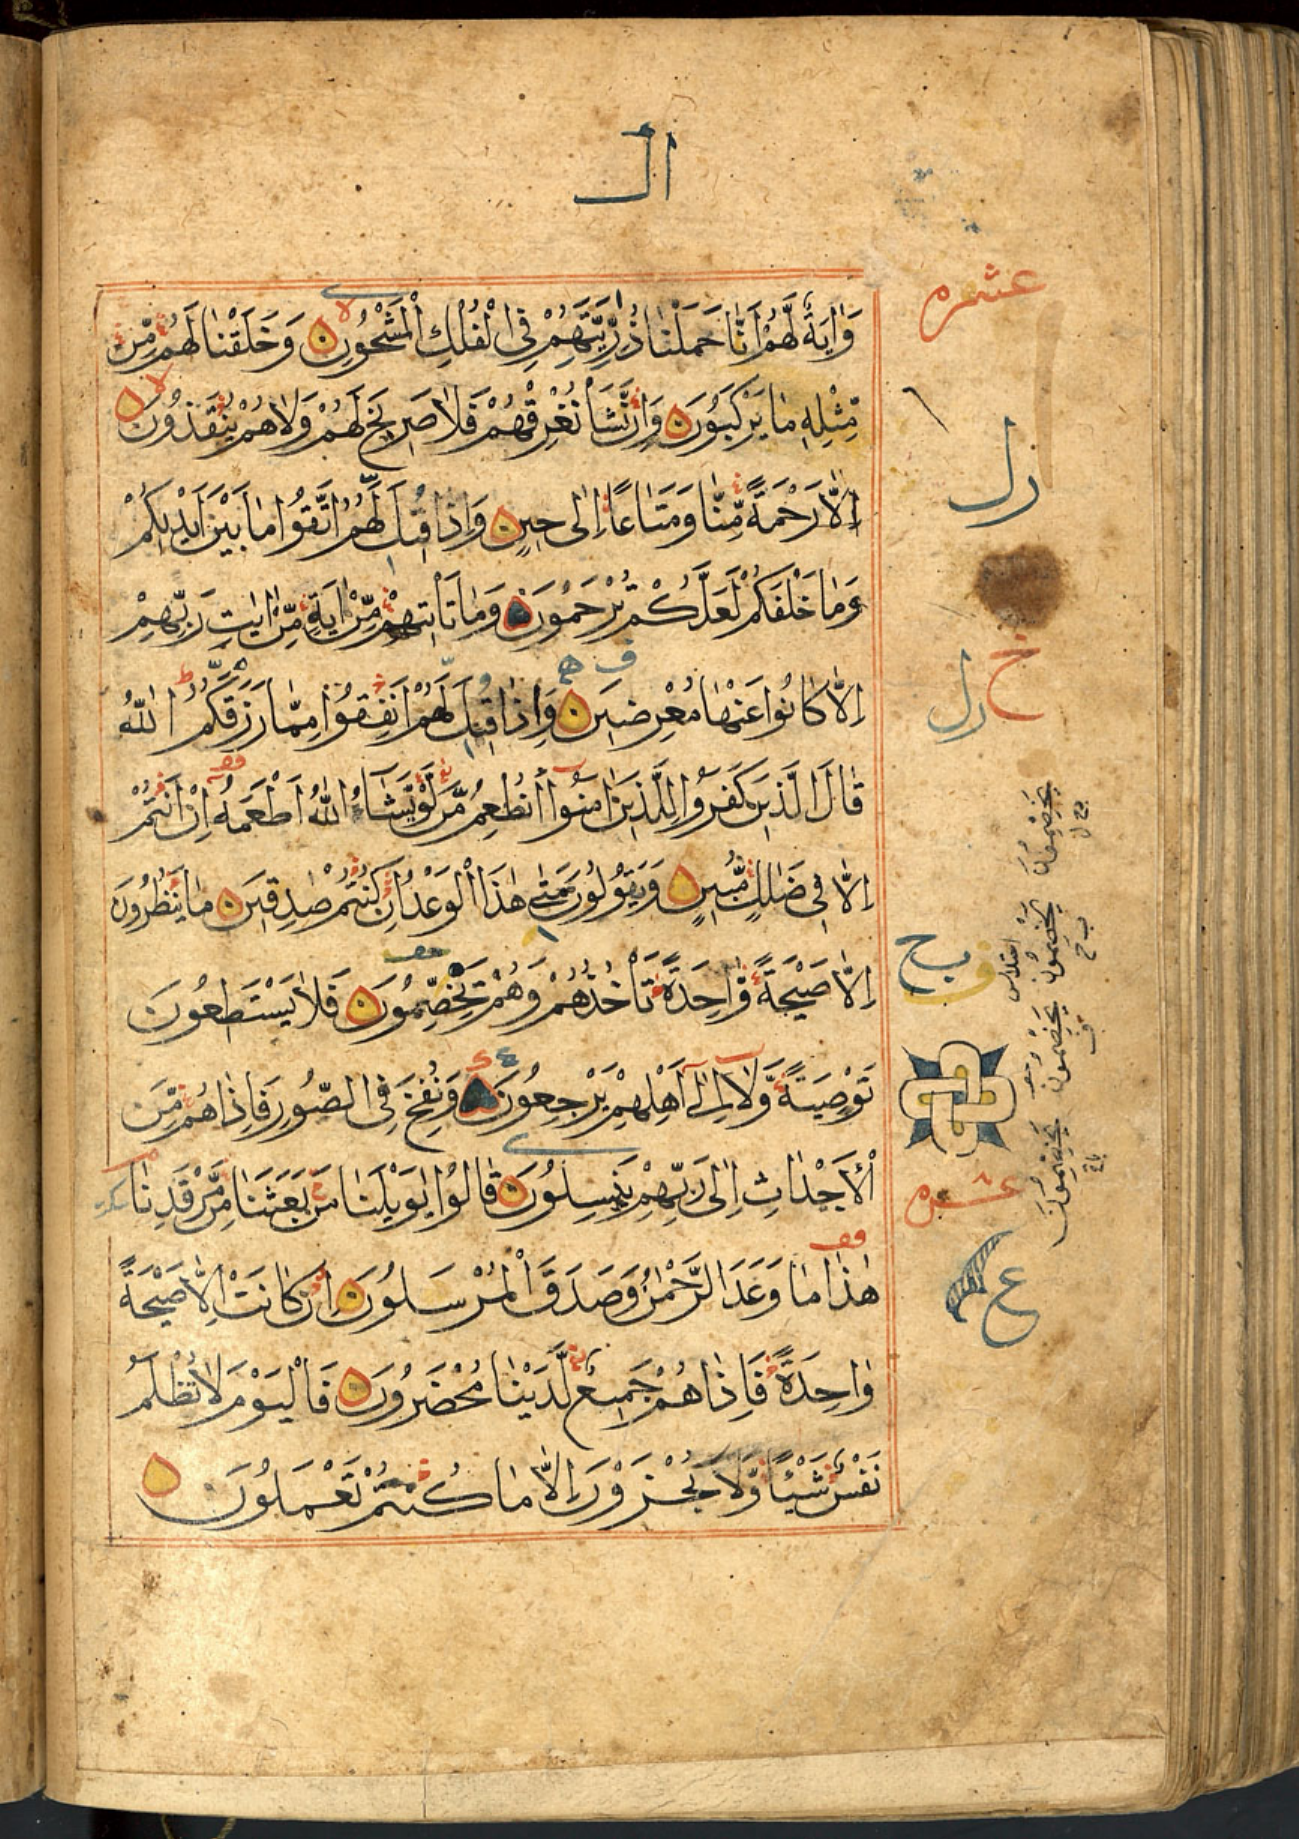 ال
وَاٰيَةٌ لَّهُمْ اَنَّا حَمَلْنَا ذُرِّيَّتَهُمْ فِي الْفُلْكِ الْمَشْحُوْنِ وَخَلَقْنَا لَهُمْ مِّنْ
مِّثْلِهٖ مَا يَرْكَبُوْنَ وَاِنْ نَّشَأْ نُغْرِقْهُمْ فَلَا صَرِيْخَ لَهُمْ وَلَا هُمْ يُنْقَذُوْنَ
اِلَّا رَحْمَةً مِّنَّا وَمَتَاعًا اِلٰى حِيْنٍ وَاِذَا قِيْلَ لَهُمُ اتَّقُوْا مَا بَيْنَ اَيْدِيْكُمْ
وَمَا خَلْفَكُمْ لَعَلَّكُمْ تُرْحَمُوْنَ وَمَا تَاْتِيْهِمْ مِّنْ اٰيَةٍ مِّنْ اٰيٰتِ رَبِّهِمْ
اِلَّا كَانُوْا عَنْهَا مُعْرِضِيْنَ وَاِذَا قِيْلَ لَهُمْ اَنْفِقُوْا مِمَّا رَزَقَكُمُ اللّٰهُ
قَالَ الَّذِيْنَ كَفَرُوْا لِلَّذِيْنَ اٰمَنُوْا اَنُطْعِمُ مَنْ لَّوْ يَشَاءُ اللّٰهُ اَطْعَمَهُ اِنْ اَنْتُمْ
اِلَّا فِيْ ضَلٰلٍ مُّبِيْنٍ وَيَقُوْلُوْنَ مَتٰى هٰذَا الْوَعْدُ اِنْ كُنْتُمْ صٰدِقِيْنَ مَا يَنْظُرُوْنَ
اِلَّا صَيْحَةً وَّاحِدَةً تَاْخُذُهُمْ وَهُمْ يَخِصِّمُوْنَ فَلَا يَسْتَطِيْعُوْنَ
تَوْصِيَةً وَّلَا اِلٰى اَهْلِهِمْ يَرْجِعُوْنَ وَنُفِخَ فِي الصُّوْرِ فَاِذَا هُمْ مِّنَ
الْاَجْدَاثِ اِلٰى رَبِّهِمْ يَنْسِلُوْنَ قَالُوْا يٰوَيْلَنَا مَنْ بَعَثَنَا مِنْ مَّرْقَدِنَا
هٰذَا مَا وَعَدَ الرَّحْمٰنُ وَصَدَقَ الْمُرْسَلُوْنَ اِنْ كَانَتْ اِلَّا صَيْحَةً
وَاحِدَةً فَاِذَا هُمْ جَمِيْعٌ لَّدَيْنَا مُحْضَرُوْنَ فَالْيَوْمَ لَا تُظْلَمُ
نَفْسٌ شَيْئًا وَّلَا تُجْزَوْنَ اِلَّا مَا كُنْتُمْ تَعْمَلُوْنَ
عشره
ل
عشره
ع